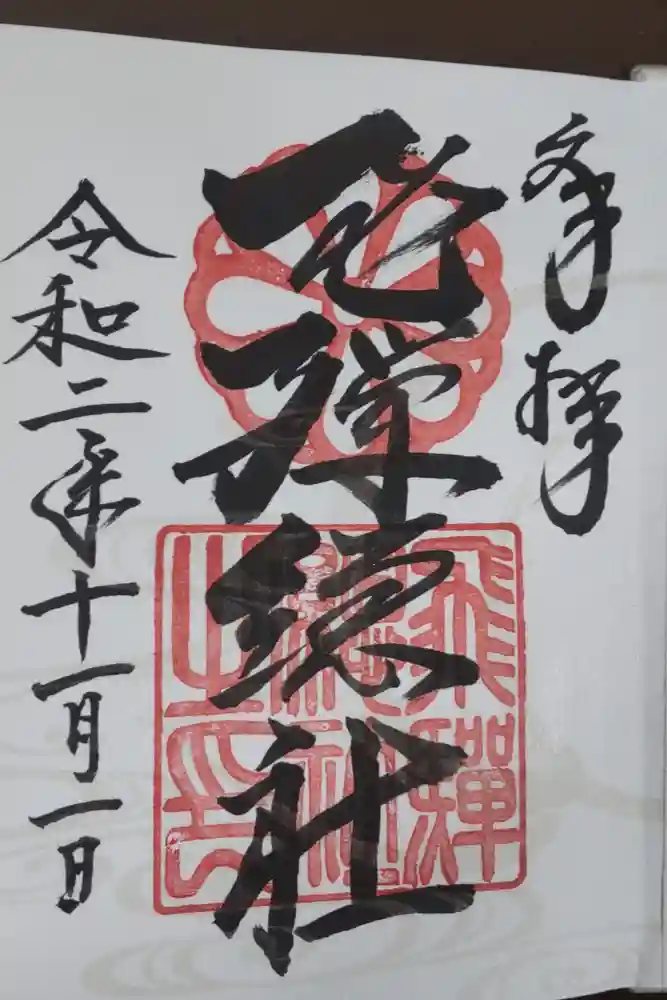 奉拝
飛彈総社
飛驒
総社
之印
令和二年十一月一日